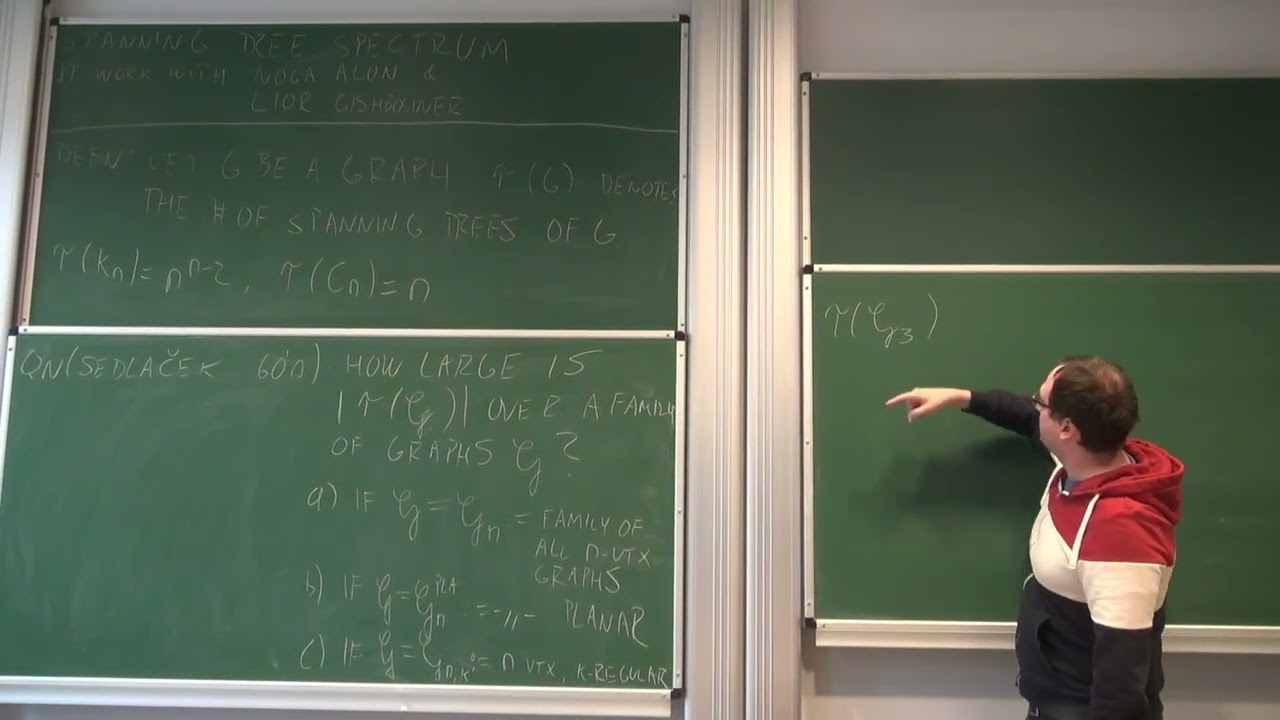 SPANNING TREE SPECTRUM
JT WORK WITH NOGA ALON &
LIOR GISHBOLINER
DEFN: LET G BE A GRAPH τ(G) DENOTES
THE # OF SPANNING TREES OF G
τ(Kn)=n^{n-2}, τ(Cn)=n
QN(SEDLAČEK 60'n) HOW LARGE IS
|τ(𝒢)| OVER A FAMILY
OF GRAPHS 𝒢?
a) IF 𝒢=𝒢_n := FAMILY OF
ALL n-VTX
GRAPHS
b) IF 𝒢=𝒢_n^{PLA} :=-,,- PLANAR
c) IF 𝒢=𝒢_{n,k}:= n VTX, K-REGULAR
τ(𝒢_3)